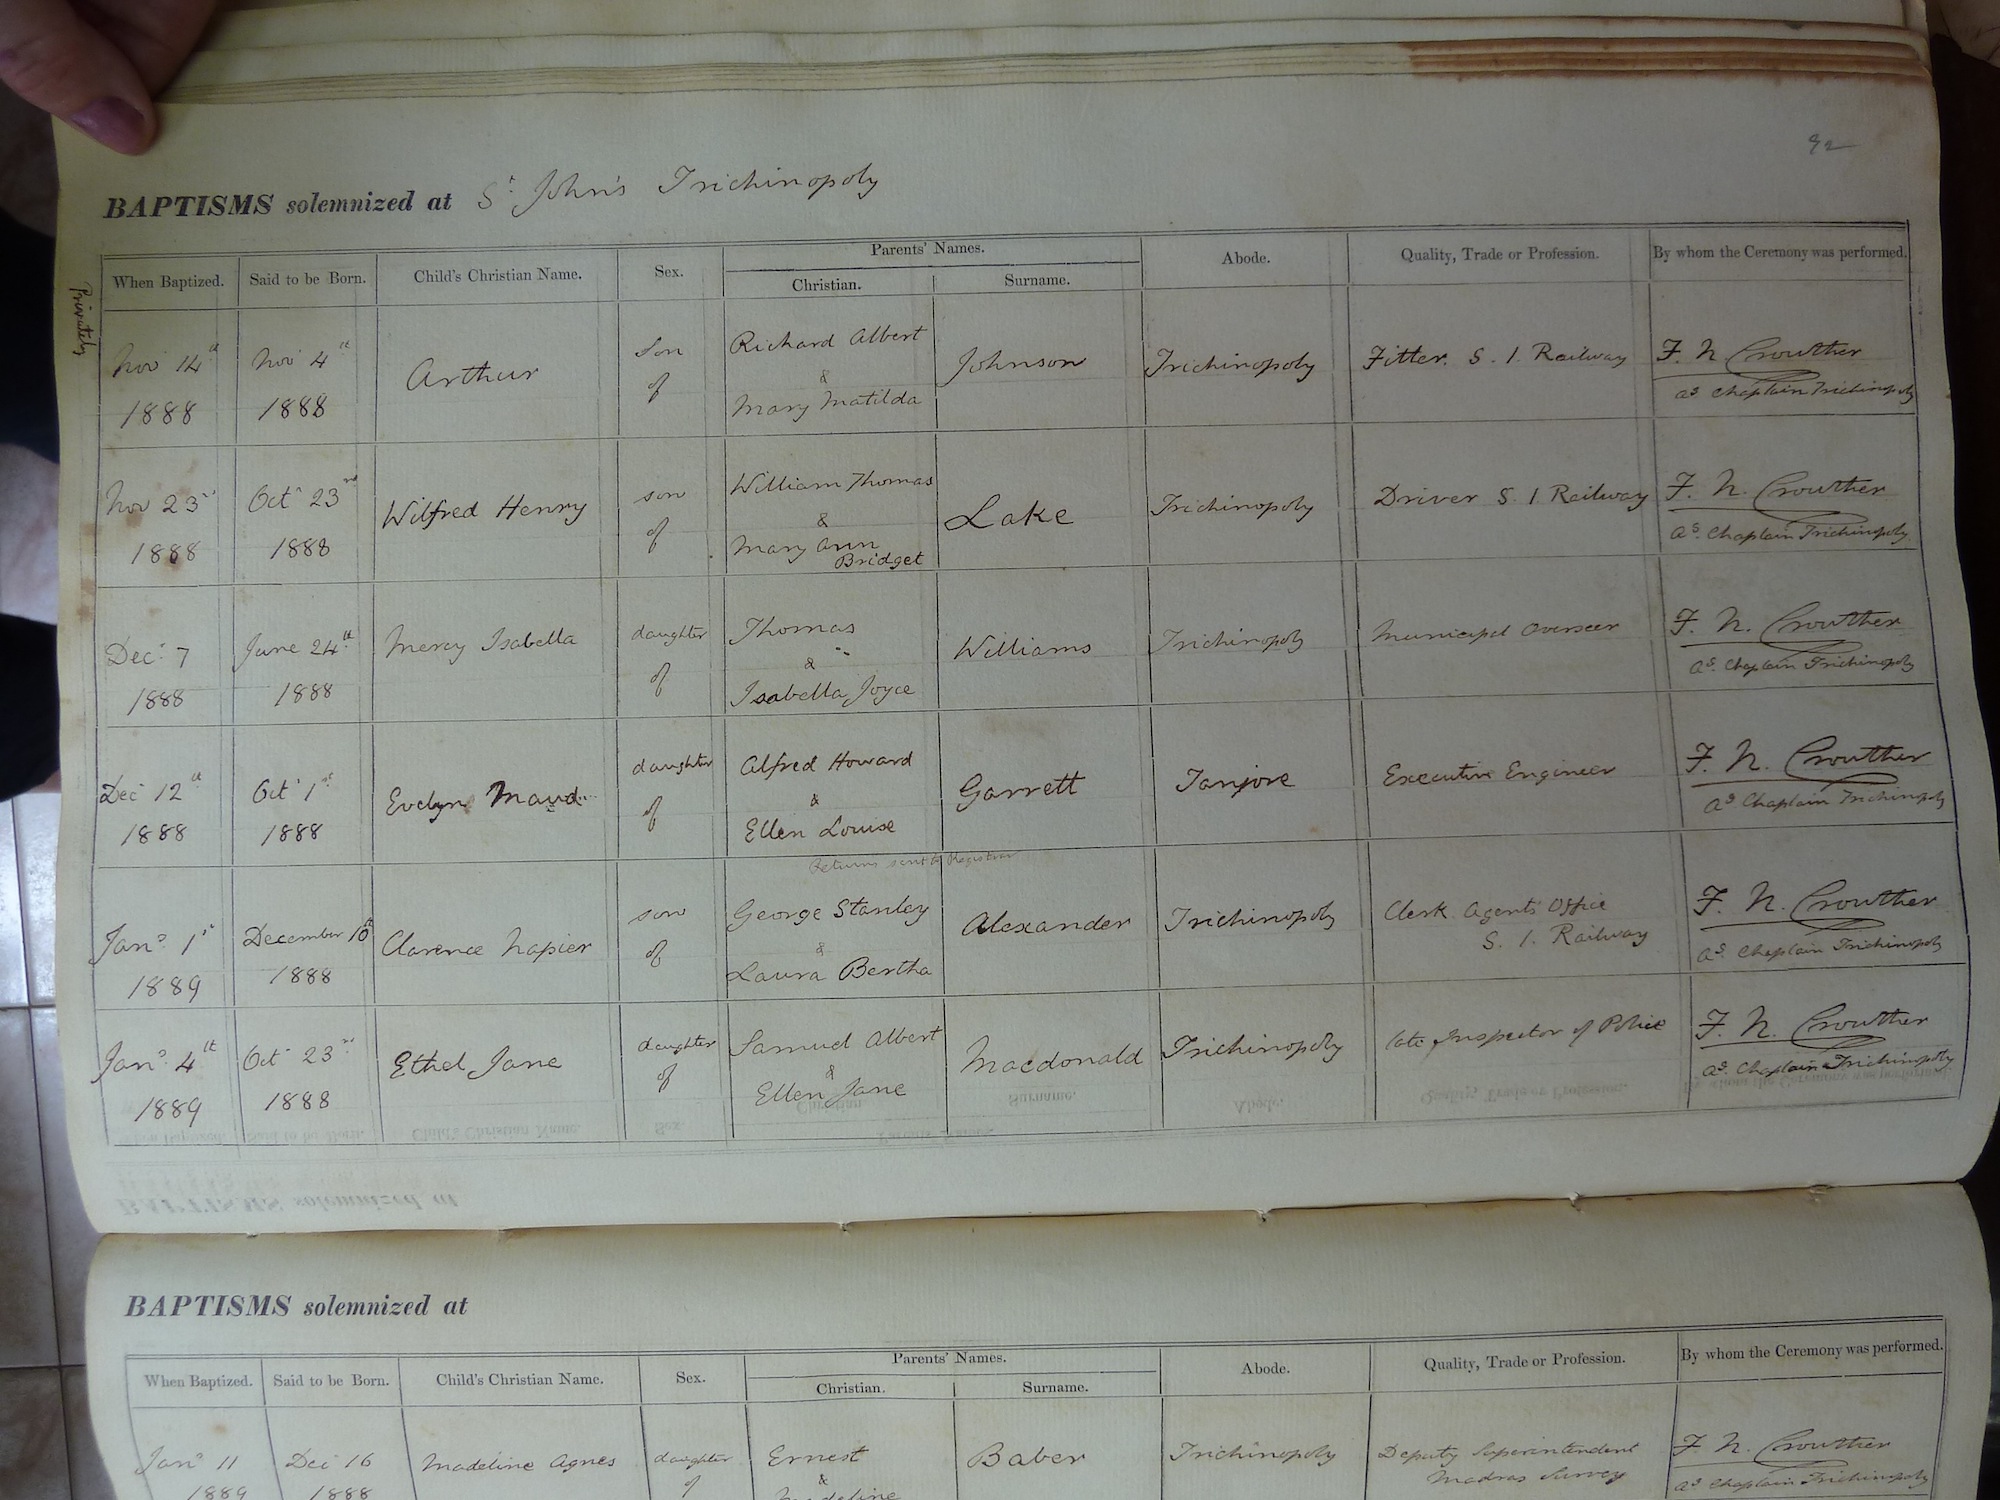 92
BAPTISMS solemnized at St John's Trichinopoly
Parents' Names.
When Baptized. Said to be Born. Child's Christian Name. Sex. Christian. Surname. Abode. Quality, Trade or Profession. By whom the Ceremony was performed.
Privately
Nov 14th 1888 Nov 4th 1888 Arthur son of Richard Albert & Mary Matilda Johnson Trichinopoly Fitter. S. I. Railway F. N. Crowther
as Chaplain Trichinopoly
Nov 23rd 1888 Oct 23rd 1888 Wilfred Henry son of William Thomas & Mary Ann Bridget Lake Trichinopoly Driver S. I Railway F. N. Crowther
as Chaplain Trichinopoly
Dec 7 1888 June 24th 1888 Mercy Isabella daughter of Thomas & Isabella Joyce Williams Trichinopoly Municipal Overseer F. N. Crowther
as Chaplain Trichinopoly
Dec 12th 1888 Oct 1st 1888 Evelyn Maud daughter of Alfred Howard & Ellen Louise Garrett Tanjore Executive Engineer F. N. Crowther
as Chaplain Trichinopoly
Returns sent to Registrar
Jany 1st 1889 December 10th 1888 Clarence Napier son of George Stanley & Laura Bertha Alexander Trichinopoly Clerk Agents Office S. I. Railway F. N. Crowther
as Chaplain Trichinopoly
Jany 4th 1889 Oct 23rd 1888 Ethel Jane daughter of Samuel Albert & Ellen Jane Macdonald Trichinopoly late Inspector of Police F. N. Crowther
as Chaplain Trichinopoly
BAPTISMS solemnized at
Parents' Names.
When Baptized. Said to be Born. Child's Christian Name. Sex. Christian. Surname. Abode. Quality, Trade or Profession. By whom the Ceremony was performed.
Jany 11 1889 Dec 16 1888 Madeline Agnes daughter of Ernest & Madeline Baber Trichinopoly Deputy Superintendent Madras Survey F. N. Crowther
as Chaplain Trichinopoly